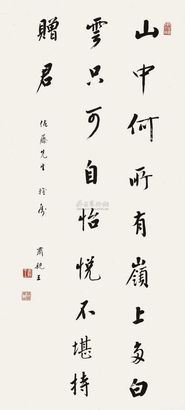 山中何所有嶺上多白
雲只可自怡悅不堪持
贈君
佐藤先生 雅屬
齊